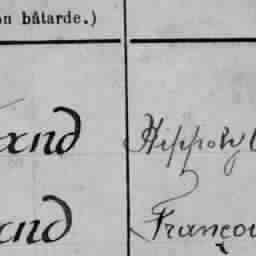 on bâtarde.)
and Hippoly
and Françoi